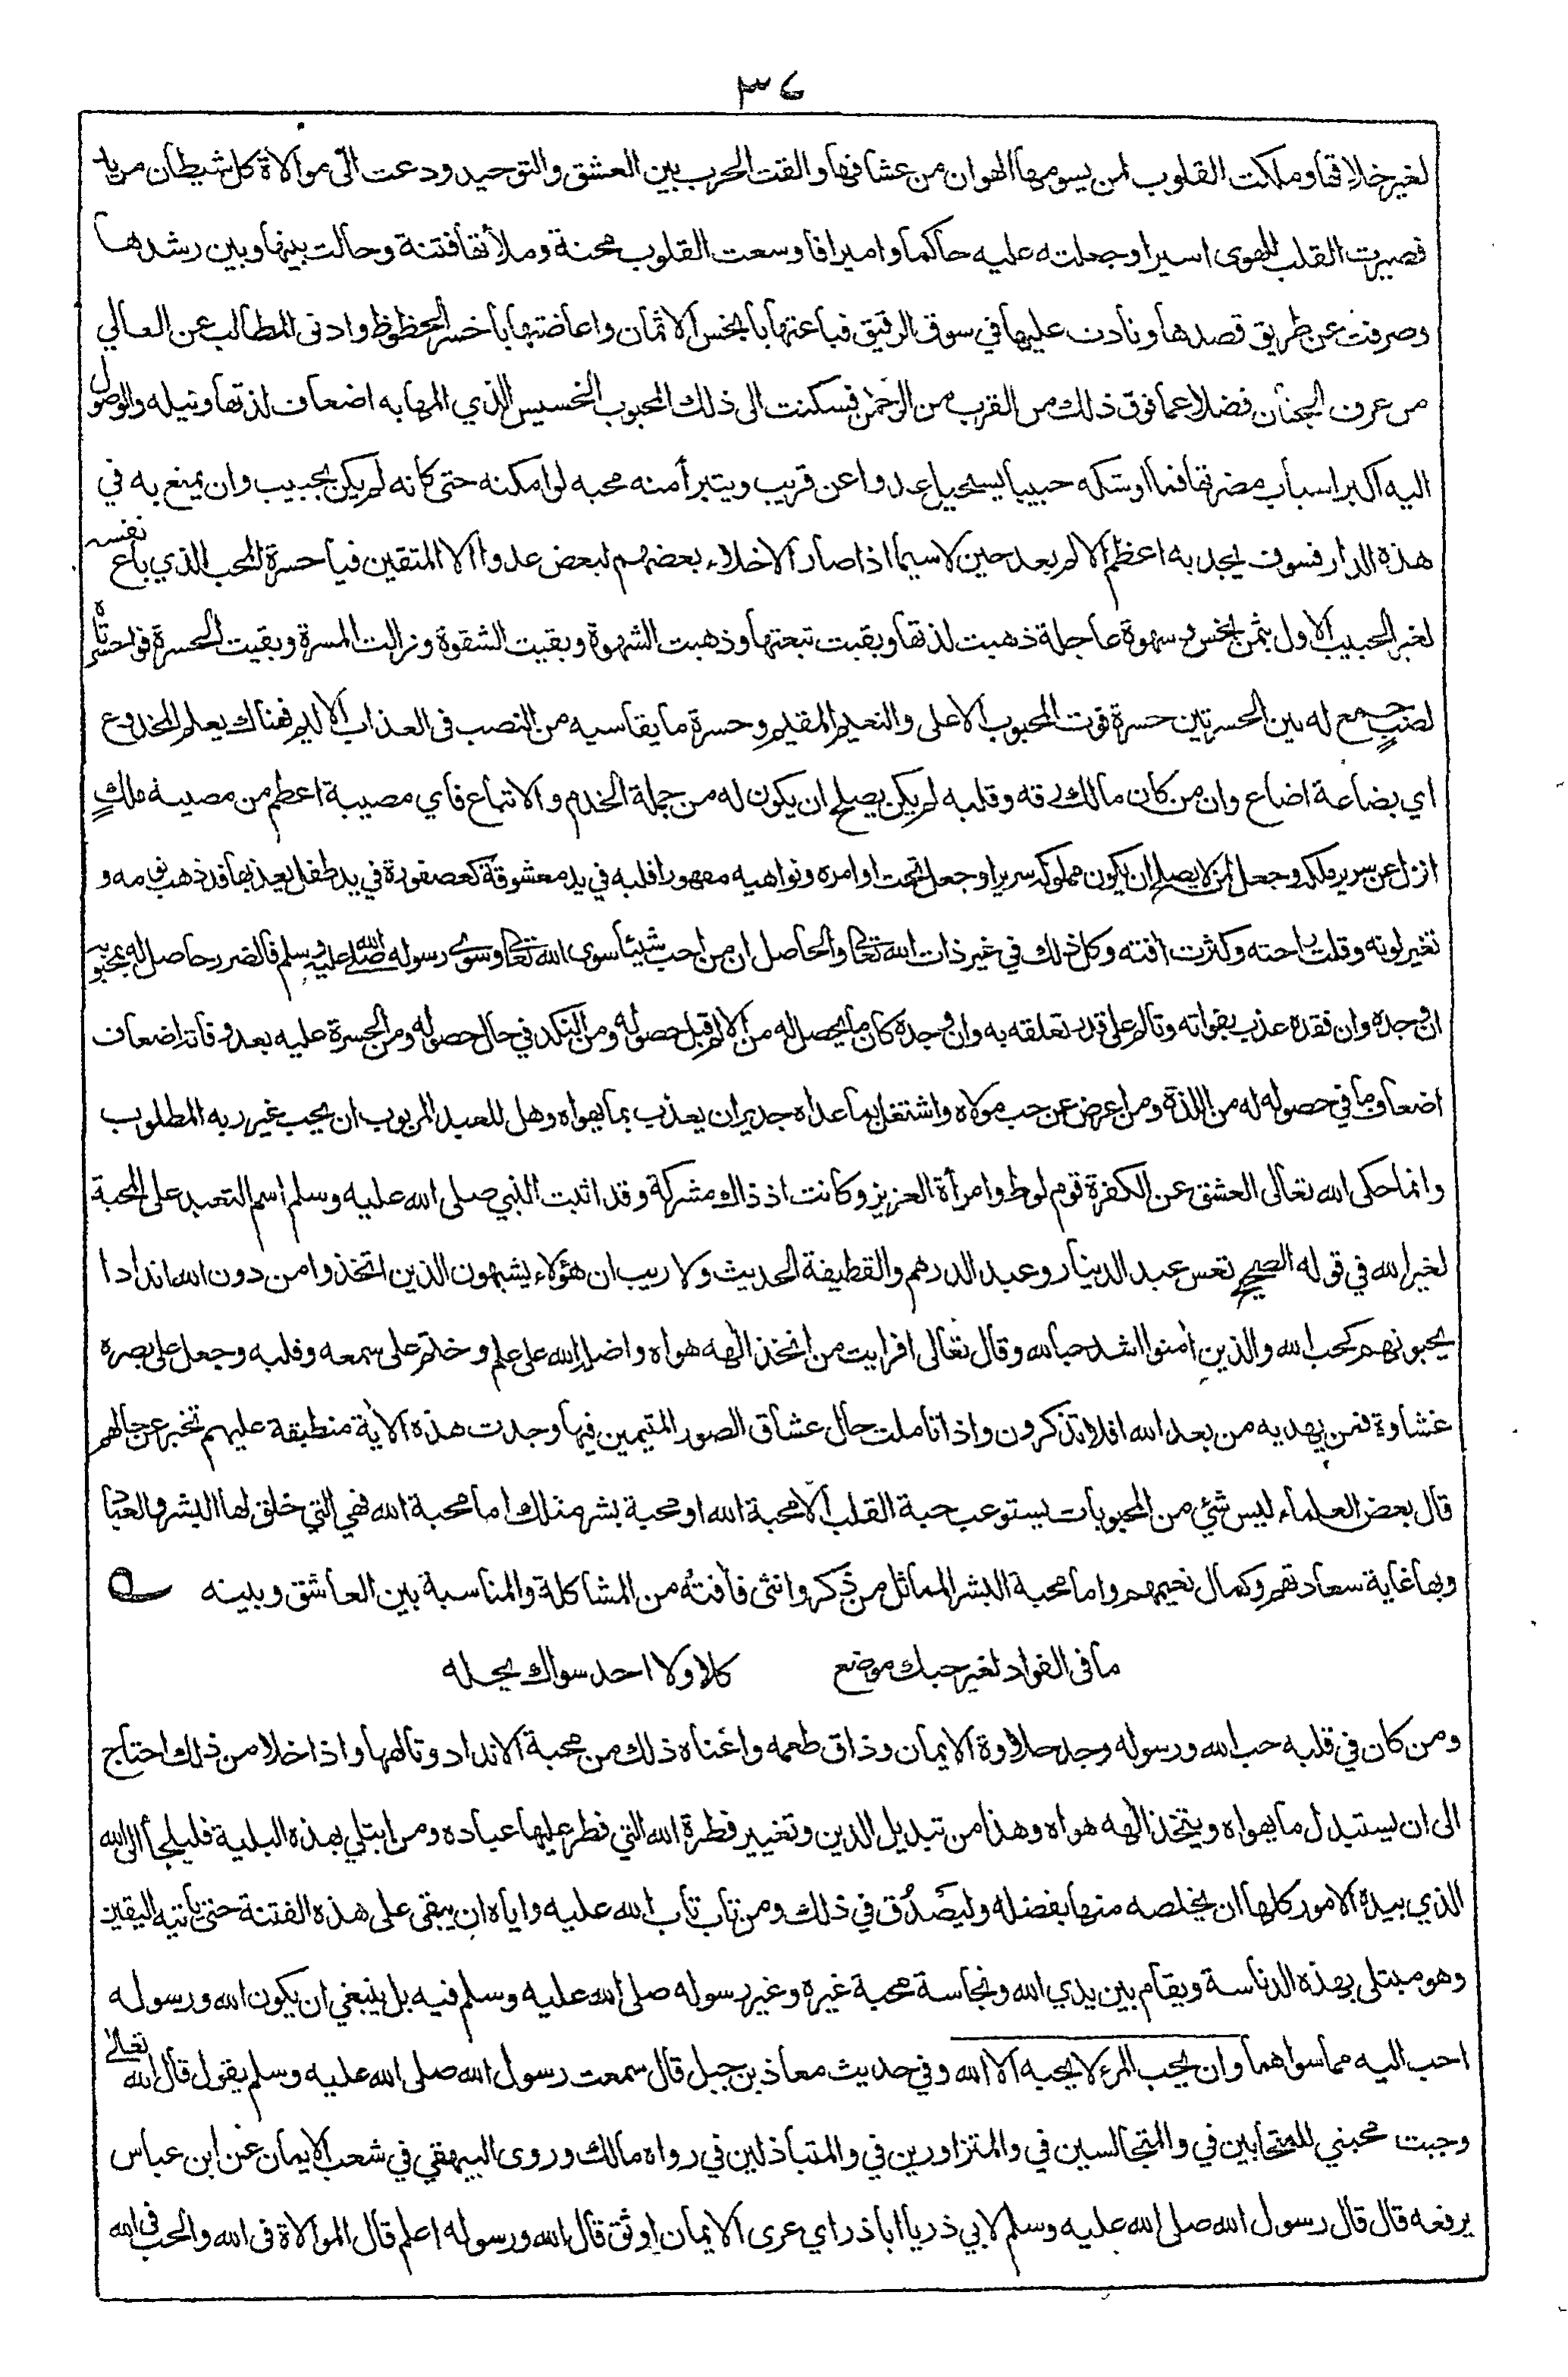 ٣٤
لغير خلاقها وملكت القلوب لمن يسومها الهوان من عشاقها والقت الحرب بين العشق والتوحيد ودعت الى موالاة كل شيطان مريد
فصيرت القلب للهوى اسيرا وجعلته عليه حاكما واميرا فاوسعت القلوب محنة وملأتها فتنة وحالت بينها وبين رشدها
وصرفت عن طريق قصدها ونادت عليها في سوق الرقيق فباعتها بابخس الاثمان واعاضتها باخسر الحظوظ وادنى المطالب عن العالي
من عرف الجنان فضلا عما فوق ذلك من القرب من الرحمن فسكنت الى ذلك المحبوب الخسيس الذي المها به اضعاف لذتها ونيله والوصول
اليه اكبر اسباب مضرتها فما اوشكه حبيبا يستحيل عدوا عن قريب ويتبرأ منه محبه لو امكنه حتى كانه لم يكن بحبيب وان يمنع به في
هذه الدار فسوف يجد به اعظم الالم بعد حين لاسيما اذا صار الاخلاء بعضهم لبعض عدوا الا المتقين فيا حسرة المحب الذي باع نفسه
لغير الحبيب الاول بثمن بخس وشهوة عاجلة ذهبت لذتها وبقيت تبعتها وذهبت الشهوة وبقيت الشقوة وزالت المسرة وبقيت الحسرة فواحسرتاه
لصب جمع له بين الحسرتين حسرة فوت المحبوب الاعلى والنعيم المقيم وحسرة ما يقاسيه من النصب في العذاب الاليم فهناك يعلم المخدوع
اي بضاعة اضاع وان من كان مالك رقه وقلبه لم يكن يصلح ان يكون له من جملة الخدم والاتباع فاي مصيبة اعظم من مصيبة ملك
انزل عن سرير ملكه وجعل لمن لا يصلح ان يكون مملوكه سريرا وجعل تحت اوامره ونواهيه مقهورا فلبه في يد معشوقة كعصفورة في يد طفل يعذبها قد ذهب نومه و
تغير لونه وقلت راحته وكثرت افته وكل ذلك في غير ذات الله تعالى والحاصل ان من احب شيئا سوى الله تعالى وسوى رسوله صلى الله عليه وسلم فالضرر حاصل له بمحبوبه
ان وجده وان فقده عذب بفواته وتالم على قدر تعلقه به وان وجده كان ما يحصل له من الالم قبل حصوله ومن النكد في حال حصوله ومن الحسرة عليه بعد فواته اضعاف
اضعاف ما في حصوله له من اللذة ومن اعرض عن حب مولاه واشتغل بما عداه جدير ان يعذب بما يهواه وهل للعبد المربوب ان يحب غير ربه المطلوب
وانما حكى الله تعالى العشق عن الكفرة قوم لوط وامرأة العزيز وكانت اذ ذاك مشركة وقد اثبت النبي صلى الله عليه وسلم اسم التعبد على المحبة
لغير الله في قوله الصحيح تعس عبد الدينار وعبد الدرهم والقطيفة الحديث ولا ريب ان هؤلاء يشبهون الذين اتخذوا من دون الله اندادا
يحبونهم كحب الله والذين امنوا اشد حبا لله وقال تعالى افرايت من اتخذ الهه هواه واضله الله على علم وختم على سمعه وقلبه وجعل على بصره
غشاوة فمن يهديه من بعد الله افلا تذكرون واذا تاملت حال عشاق الصور المتيمين فيها وجدت هذه الاية منطبقة عليهم تخبر عن حالهم
قال بعض العلماء ليس شئ من المحبوبات يستوعب حبة القلب الا محبة الله او محبة بشر مثلك اما محبة الله فهي التي خلق لها البشر والعباد
وبها غاية سعادتهم وكمال نعيمهم واما محبة البشر المماثل من ذكر وانثى فآفته من المشاكلة والمناسبة بين العاشق وبينه
ما في الفؤاد لغير حبك موضع كلا ولا احد سواك يحله
ومن كان في قلبه حب الله ورسوله وجد حلاوة الايمان وذاق طعمه واغناه ذلك من محبة الانداد وتالهها واذا خلا من ذلك احتاج
الى ان يستبدل ما يهواه ويتخذ الهه هواه وهذا من تبديل الدين وتغيير فطرة الله التي فطر عليها عباده ومن ابتلي بهذه البلية فليلجأ الى الله
الذي بيده الامور كلها ان يخلصه منها بفضله وليصدق في ذلك ومن تاب تاب الله عليه واياه ان يبقى على هذه الفتنة حتى ياتيه اليقين
وهو مبتلى بهذه الدناسة ويقام بين يدي الله ونجاسة محبة غيره وغير رسوله صلى الله عليه وسلم فيه بل ينبغي ان يكون الله ورسوله
احب اليه مما سواهما وان يحب المرء لا يحبه الا الله وفي حديث معاذ بن جبل قال سمعت رسول الله صلى الله عليه وسلم يقول قال الله تعالى
وجبت محبتي للمتحابين في والمتجالسين في والمتزاورين في والمتباذلين في رواه مالك وروى البيهقي في شعب الايمان عن ابن عباس
يرفعه قال قال رسول الله صلى الله عليه وسلم لابي ذر يا ابا ذر اي عرى الايمان اوثق قال الله ورسوله اعلم قال الموالاة في الله والحب في الله